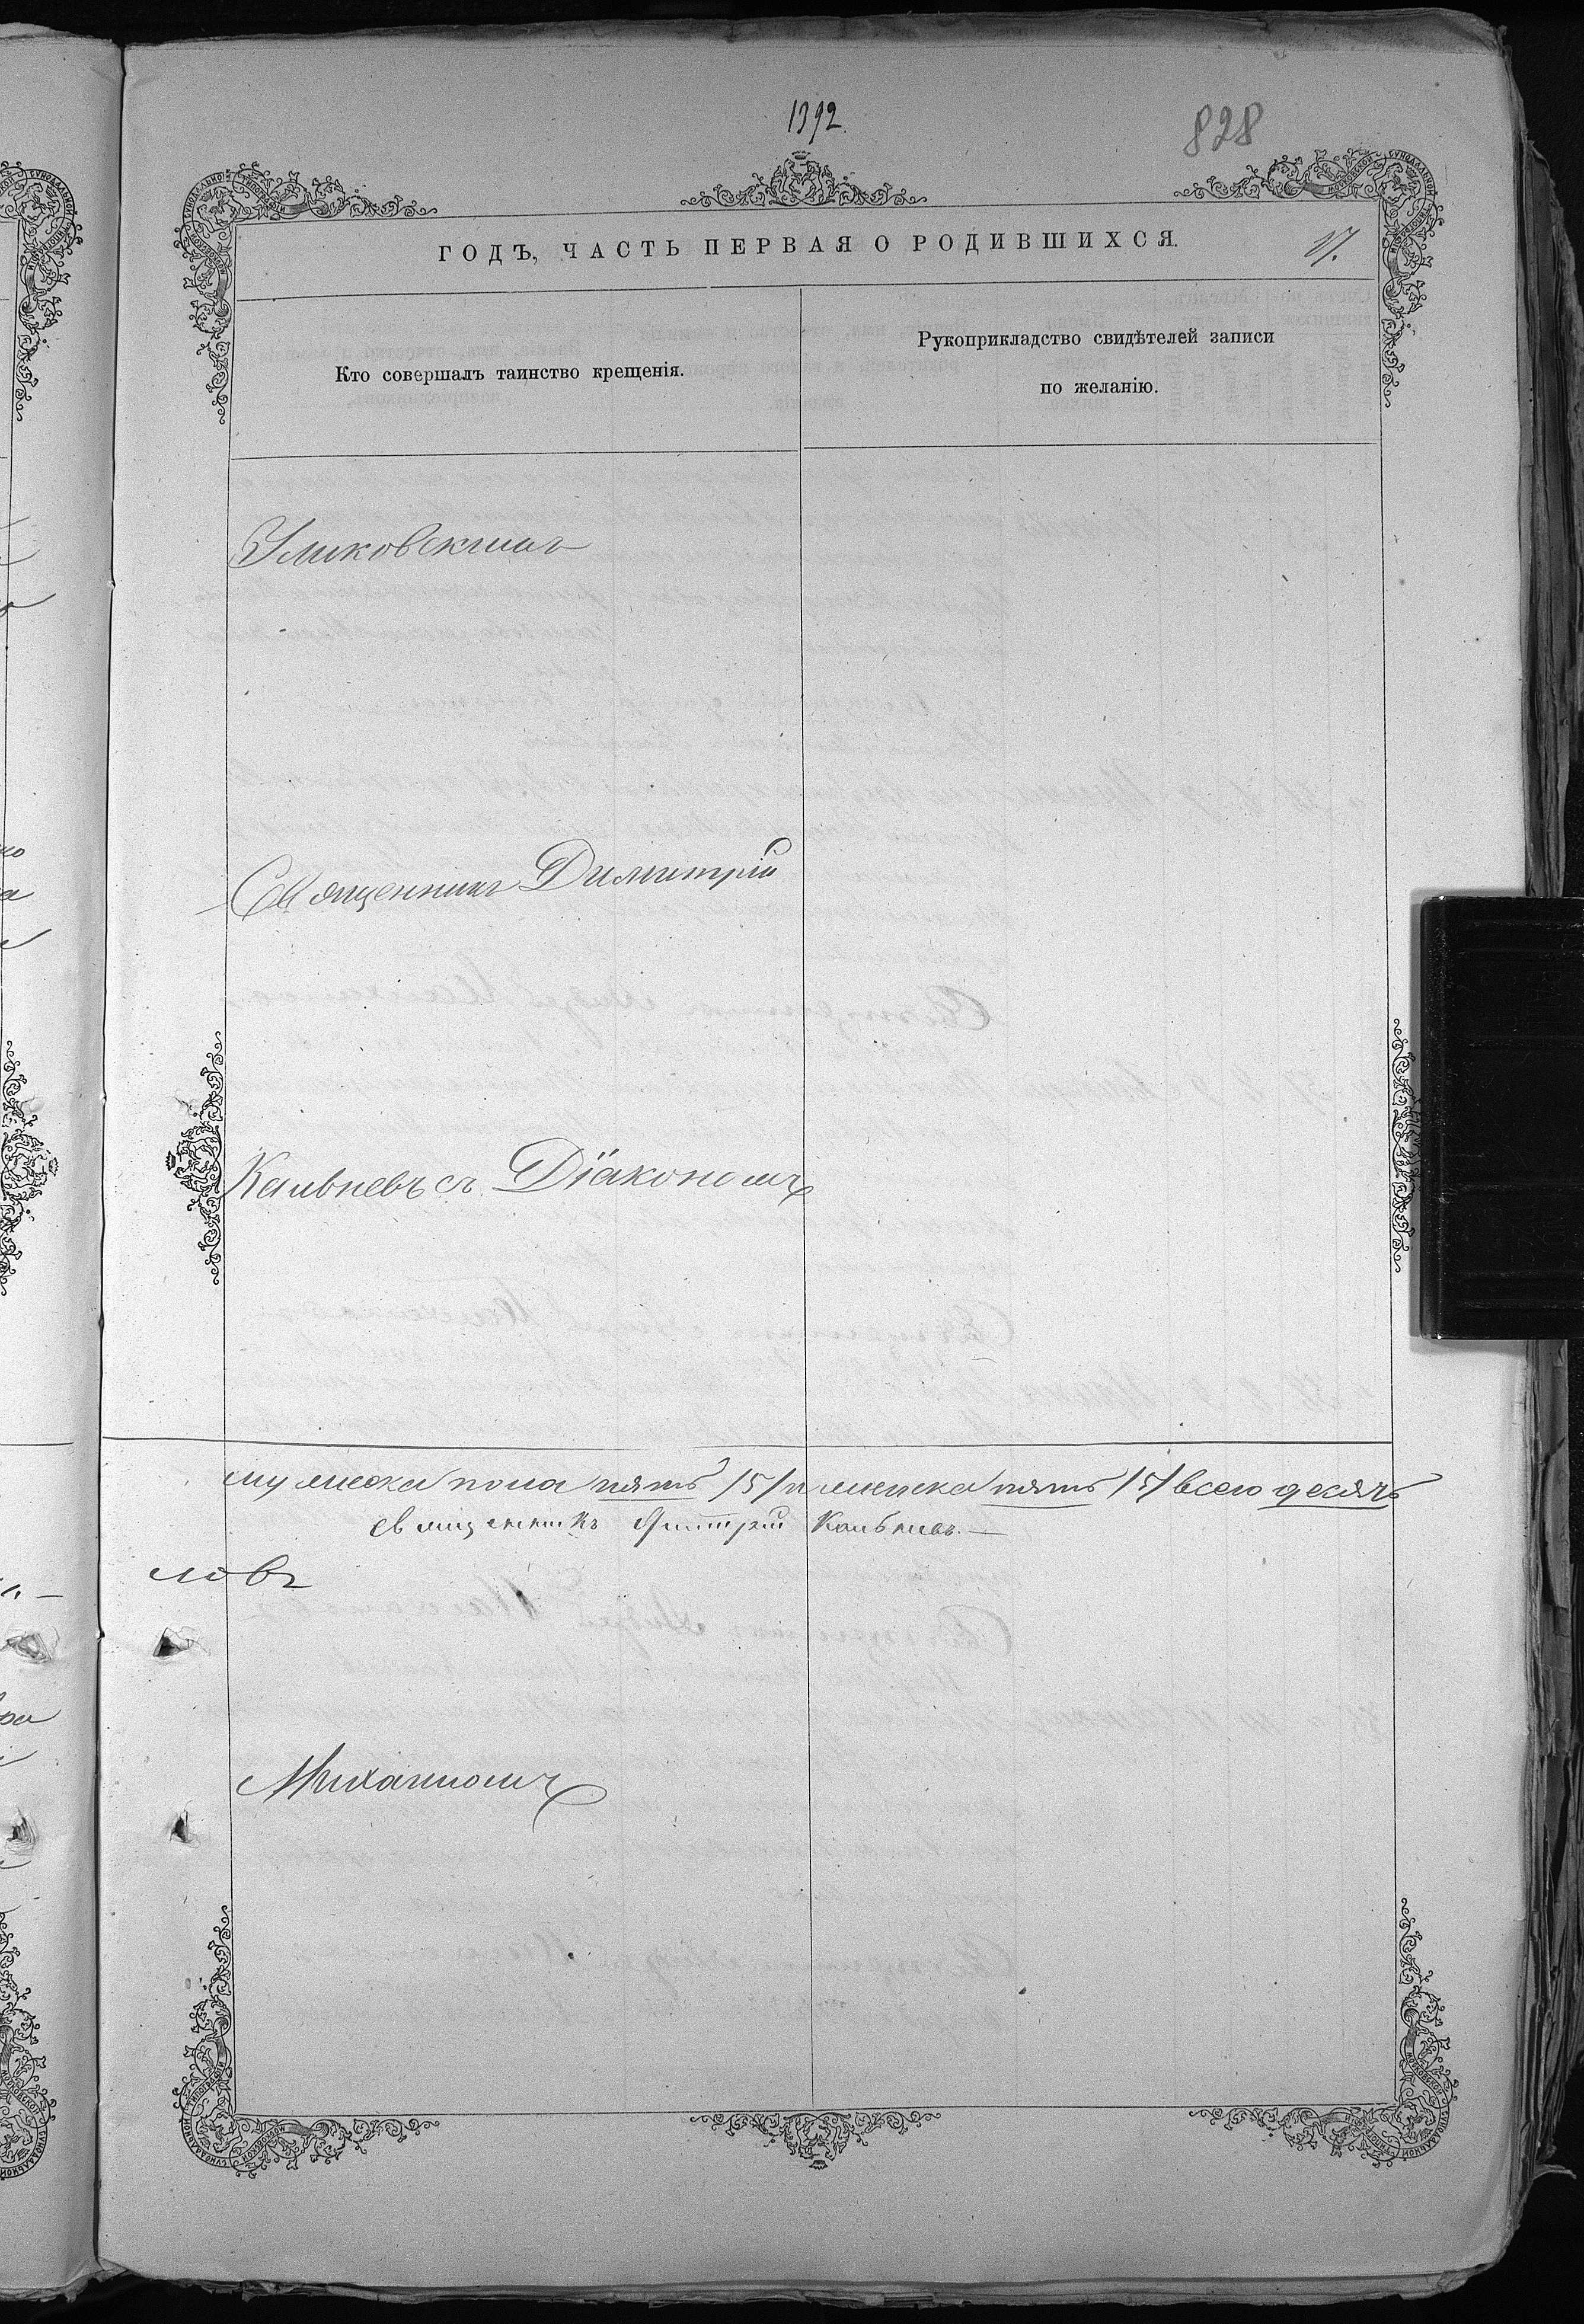 1392.
828
ГОДЪ, ЧАСТЬ ПЕРВАЯ О РОДИВШИХСЯ.
17.
Кто совершалъ таинство крещенія.
Рукоприкладство свидѣтелей записи
по желанію.
Священникъ Димитрій
Кальневъ съ Діакономъ
мужеска пола пять /5/ и женска пять /5/ всего десять
священникъ Дмитрій Кальневъ. —
ловъ
Михаиломъ